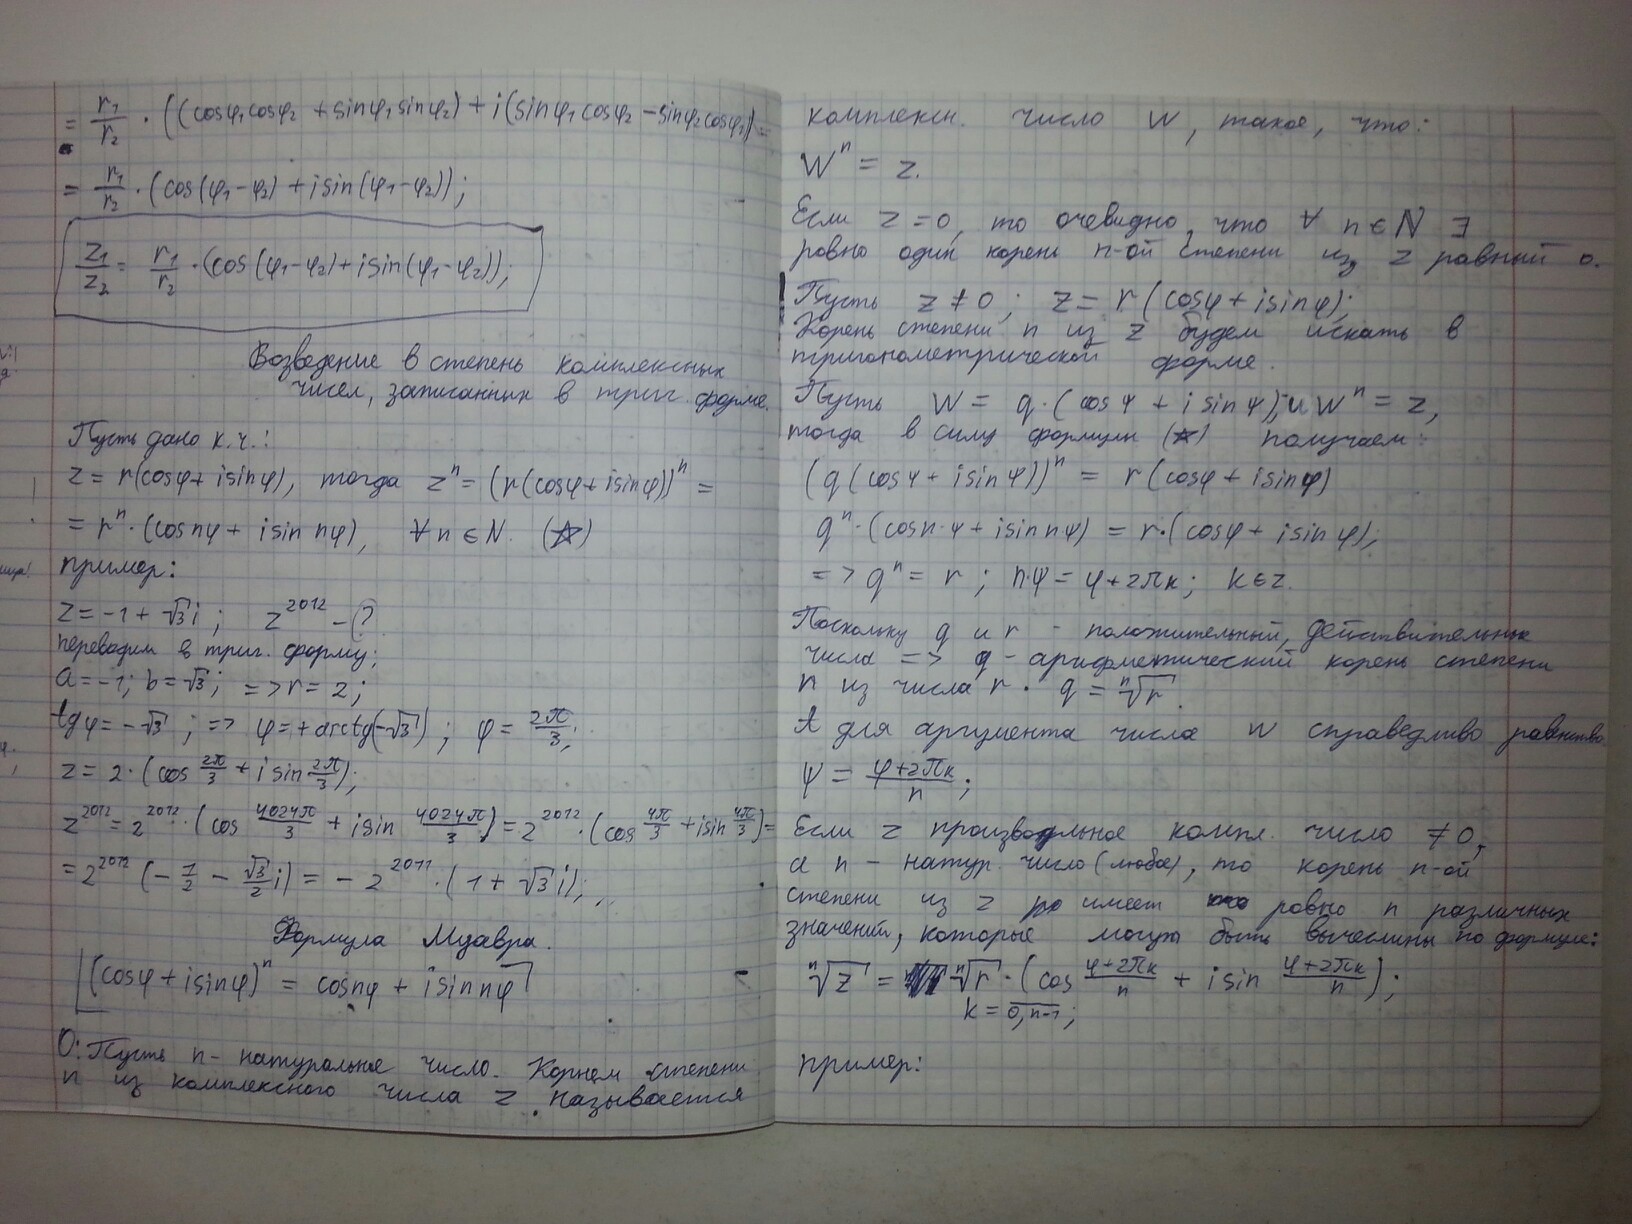 = r₁/r₂ · ((cosφ₁cosφ₂ + sinφ₁sinφ₂) + i(sinφ₁cosφ₂ - sinφ₂cosφ₁)) =
= r₁/r₂ · (cos(φ₁-φ₂) + isin(φ₁-φ₂));
z₁/z₂ = r₁/r₂ · (cos(φ₁-φ₂) + isin(φ₁-φ₂));
Возведение в степень комплексных
чисел, записанных в триг. форме.
Пусть дано к.ч.:
z = r(cosφ + isinφ), тогда zⁿ = (r(cosφ + isinφ))ⁿ =
= rⁿ · (cosnφ + isin nφ), ∀ n ∈ N. (☆)
пример:
z = -1 + √3 i ; z²⁰¹² - ?
переводим в триг. форму;
a = -1; b = √3; => r = 2;
tgφ = -√3 ; => φ = + arctg(-√3) ; φ = 2π/3;
z = 2 · (cos 2π/3 + i sin 2π/3);
z²⁰¹² = 2²⁰¹² · (cos 4024π/3 + isin 4024π/3) = 2²⁰¹² · (cos 4π/3 + isin 4π/3) =
= 2²⁰¹² (- 1/2 - √3/2 i) = - 2²⁰¹¹ · (1 + √3 i);
Формула Муавра.
(cosφ + isinφ)ⁿ = cosnφ + isinnφ
О: Пусть n - натуральное число. Корнем степени
n из комплексного числа z называется
комплексн. число W, такое, что:
Wⁿ = z.
Если z = 0, то очевидно, что ∀ n ∈ N ∃
ровно один корень n-ой степени из z равный 0.
Пусть z ≠ 0 ; z = r (cosφ + isinφ);
Корень степени n из z будем искать в
тригонометрической форме.
Пусть W = q · (cosψ + i sinψ); и Wⁿ = z,
тогда в силу формулы (☆) получаем:
(q (cosψ + isinψ))ⁿ = r (cosφ + isinφ)
qⁿ · (cosn·ψ + isin nψ) = r · (cosφ + isinφ);
=> qⁿ = r ; n·ψ = φ + 2πk; k ∈ z.
Поскольку q и r - положительный, действительные
числа => q - арифметический корень степени
n из числа r. q = ⁿ√r.
А для аргумента числа w справедливо равенство
ψ = (φ+2πk)/n ;
Если z произвольное компл. число ≠ 0,
а n - натур. число (любое), то корень n-ой
степени из z имеет ровно n различных
значений, которые могут быть вычеслины по формуле:
ⁿ√z = ⁿ√r · (cos (φ+2πk)/n + isin (φ+2πk)/n );
k = 0,n-1;
пример: